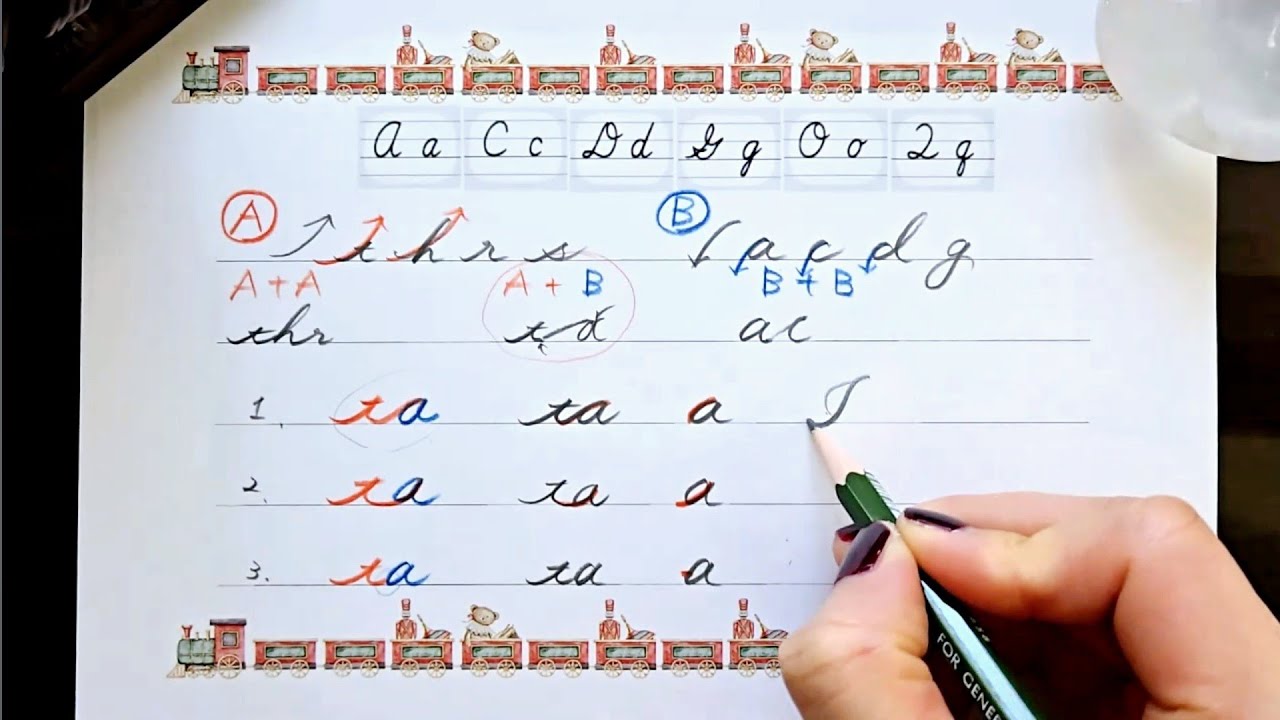 A a C c D d G g O o Q q
A t h r s B a c d g
A + A A + B B + B
thr td ac
1. ta ta a I
2. ta ta a
3. ta ta a
FOR GENER